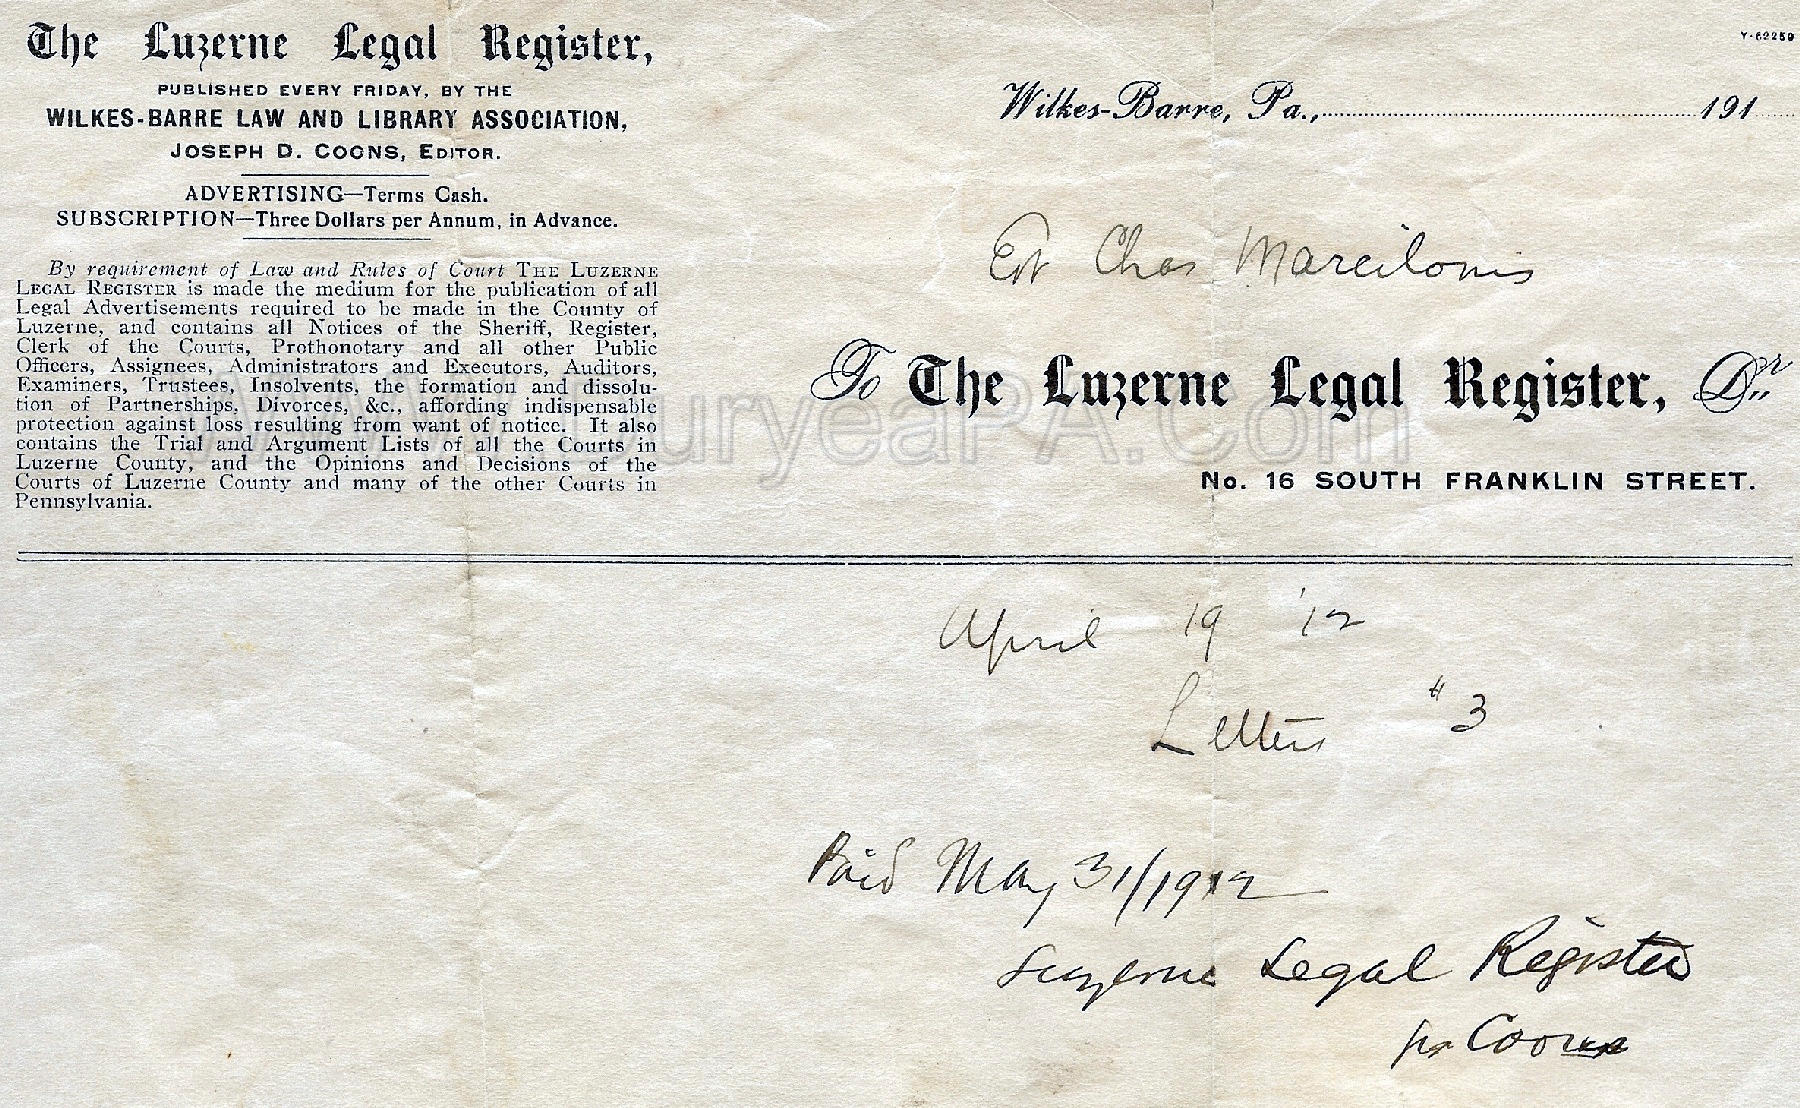 The Luzerne Legal Register,
PUBLISHED EVERY FRIDAY, BY THE
WILKES-BARRE LAW AND LIBRARY ASSOCIATION,
JOSEPH D. COONS, EDITOR.
ADVERTISING—Terms Cash.
SUBSCRIPTION—Three Dollars per Annum, in Advance.
By requirement of Law and Rules of Court THE LUZERNE
LEGAL REGISTER is made the medium for the publication of all
Legal Advertisements required to be made in the County of
Luzerne, and contains all Notices of the Sheriff, Register,
Clerk of the Courts, Prothonotary and all other Public
Officers, Assignees, Administrators and Executors, Auditors,
Examiners, Trustees, Insolvents, the formation and dissolu-
tion of Partnerships, Divorces, &c., affording indispensable
protection against loss resulting from want of notice. It also
contains the Trial and Argument Lists of all the Courts in
Luzerne County, and the Opinions and Decisions of the
Courts of Luzerne County and many of the other Courts in
Pennsylvania.
Y-62259
Wilkes-Barre, Pa., 191
Est Chas Marcilonis
To The Luzerne Legal Register, Dr.
No. 16 SOUTH FRANKLIN STREET.
www.DuryeaPA.Com
April 19 '12
Letters "3
Paid May 31/1912
Luzerne Legal Register
pr Coons